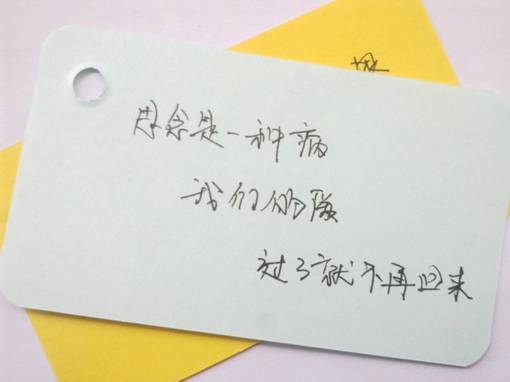 思念是一种病
我们的爱
过了就不再回来